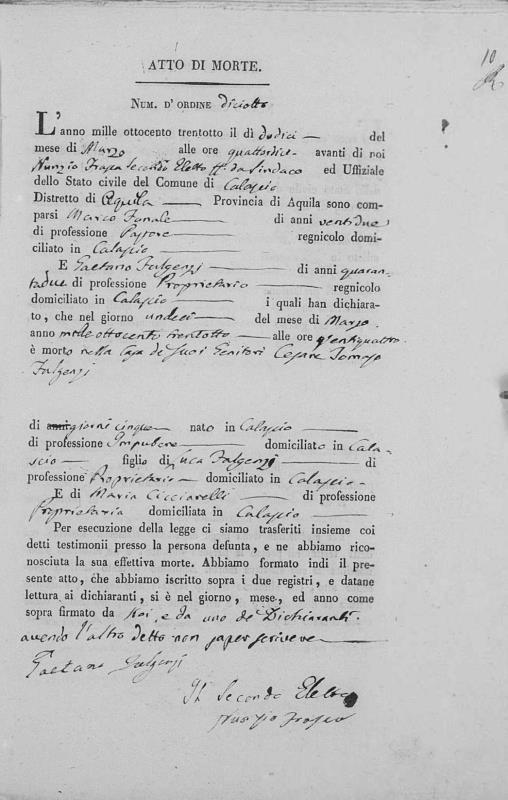 10
ATTO DI MORTE.
NUM. D' ORDINE diciotto
L'anno mille ottocento trentotto il dì dodici del
mese di Marzo alle ore quattordici avanti di noi
Nunzio Frasca Secondo Eletto ff. da Sindaco ed Uffiziale
dello Stato civile del Comune di Calascio
Distretto di Aquila Provincia di Aquila sono com-
parsi Marco Fanale di anni ventidue
di professione Pastore regnicolo domi-
ciliato in Calascio
E Gaetano Fulgenzj di anni quaran-
tadue di professione Proprietario regnicolo
domiciliato in Calascio i quali han dichiara-
to, che nel giorno undeci del mese di Marzo
anno mille ottocento trentotto alle ore ventiquattro
è morto nella Casa de' suoi Genitori Cesare Tomaso
Fulgenzj
di anni giorni cinque nato in Calascio
di professione Impubere domiciliato in Cala-
scio figlio di Luca Fulgenzj di
professione Proprietario domiciliato in Calascio
E di Maria Cicciarelli di professione
Proprietaria domiciliata in Calascio
Per esecuzione della legge ci siamo trasferiti insieme coi
detti testimonii presso la persona defunta, e ne abbiamo rico-
nosciuta la sua effettiva morte. Abbiamo formato indi il pre-
sente atto, che abbiamo iscritto sopra i due registri, e datane
lettura ai dichiaranti, si è nel giorno, mese, ed anno come
sopra firmato da Noi, e da uno de' Dichiaranti.
avendo l'altro detto non saper scrivere
Gaetano Fulgenzj
Il Secondo Eletto
Nunzio Frasca